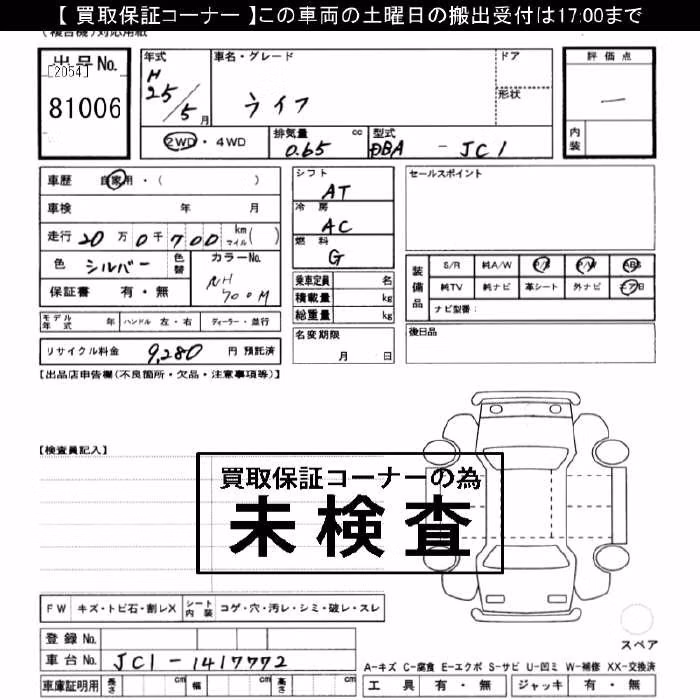 【 買取保証コーナー 】この車両の土曜日の搬出受付は17:00まで
(複合機)対応用紙
出品No.
[2054]
81006
年式
H
25/5月
車名・グレード
ライフ
ドア
形状
評価点
—
内装
2WD・4WD
排気量 cc
0.65
型式
DBA - JC1
車歴 自家用・( )
車検 年 月
走行 20万0千700 km マイル( )
色 シルバー 色替
カラーNo.
NH700M
保証書 有・無
モデル年式 年 ハンドル 左・右 ディーラー・並行
リサイクル料金 9,280 円 預託済
シフト
AT
冷房
AC
燃料
G
乗車定員 名
積載量 kg
総重量 kg
名変期限
月 日
セールスポイント
装備品
S/R 純A/W P/S P/W ABS
純TV 純ナビ 革シート 外ナビ エアB
ナビ型番:
後日品
【出品店申告欄(不良箇所・欠品・注意事項等)】
【検査員記入】
買取保証コーナーの為
未検査
FW キズ・トビ石・割レX シート内装 コゲ・穴・汚レ・シミ・破レ・スレ
登録No.
車台No. JC1-1417772
車庫証明用 長さ cm 幅 cm 高さ cm
スペア
A-キズ C-腐食 E-エクボ S-サビ U-凹ミ W-補修 XX-交換済
工具 有・無 ジャッキ 有・無